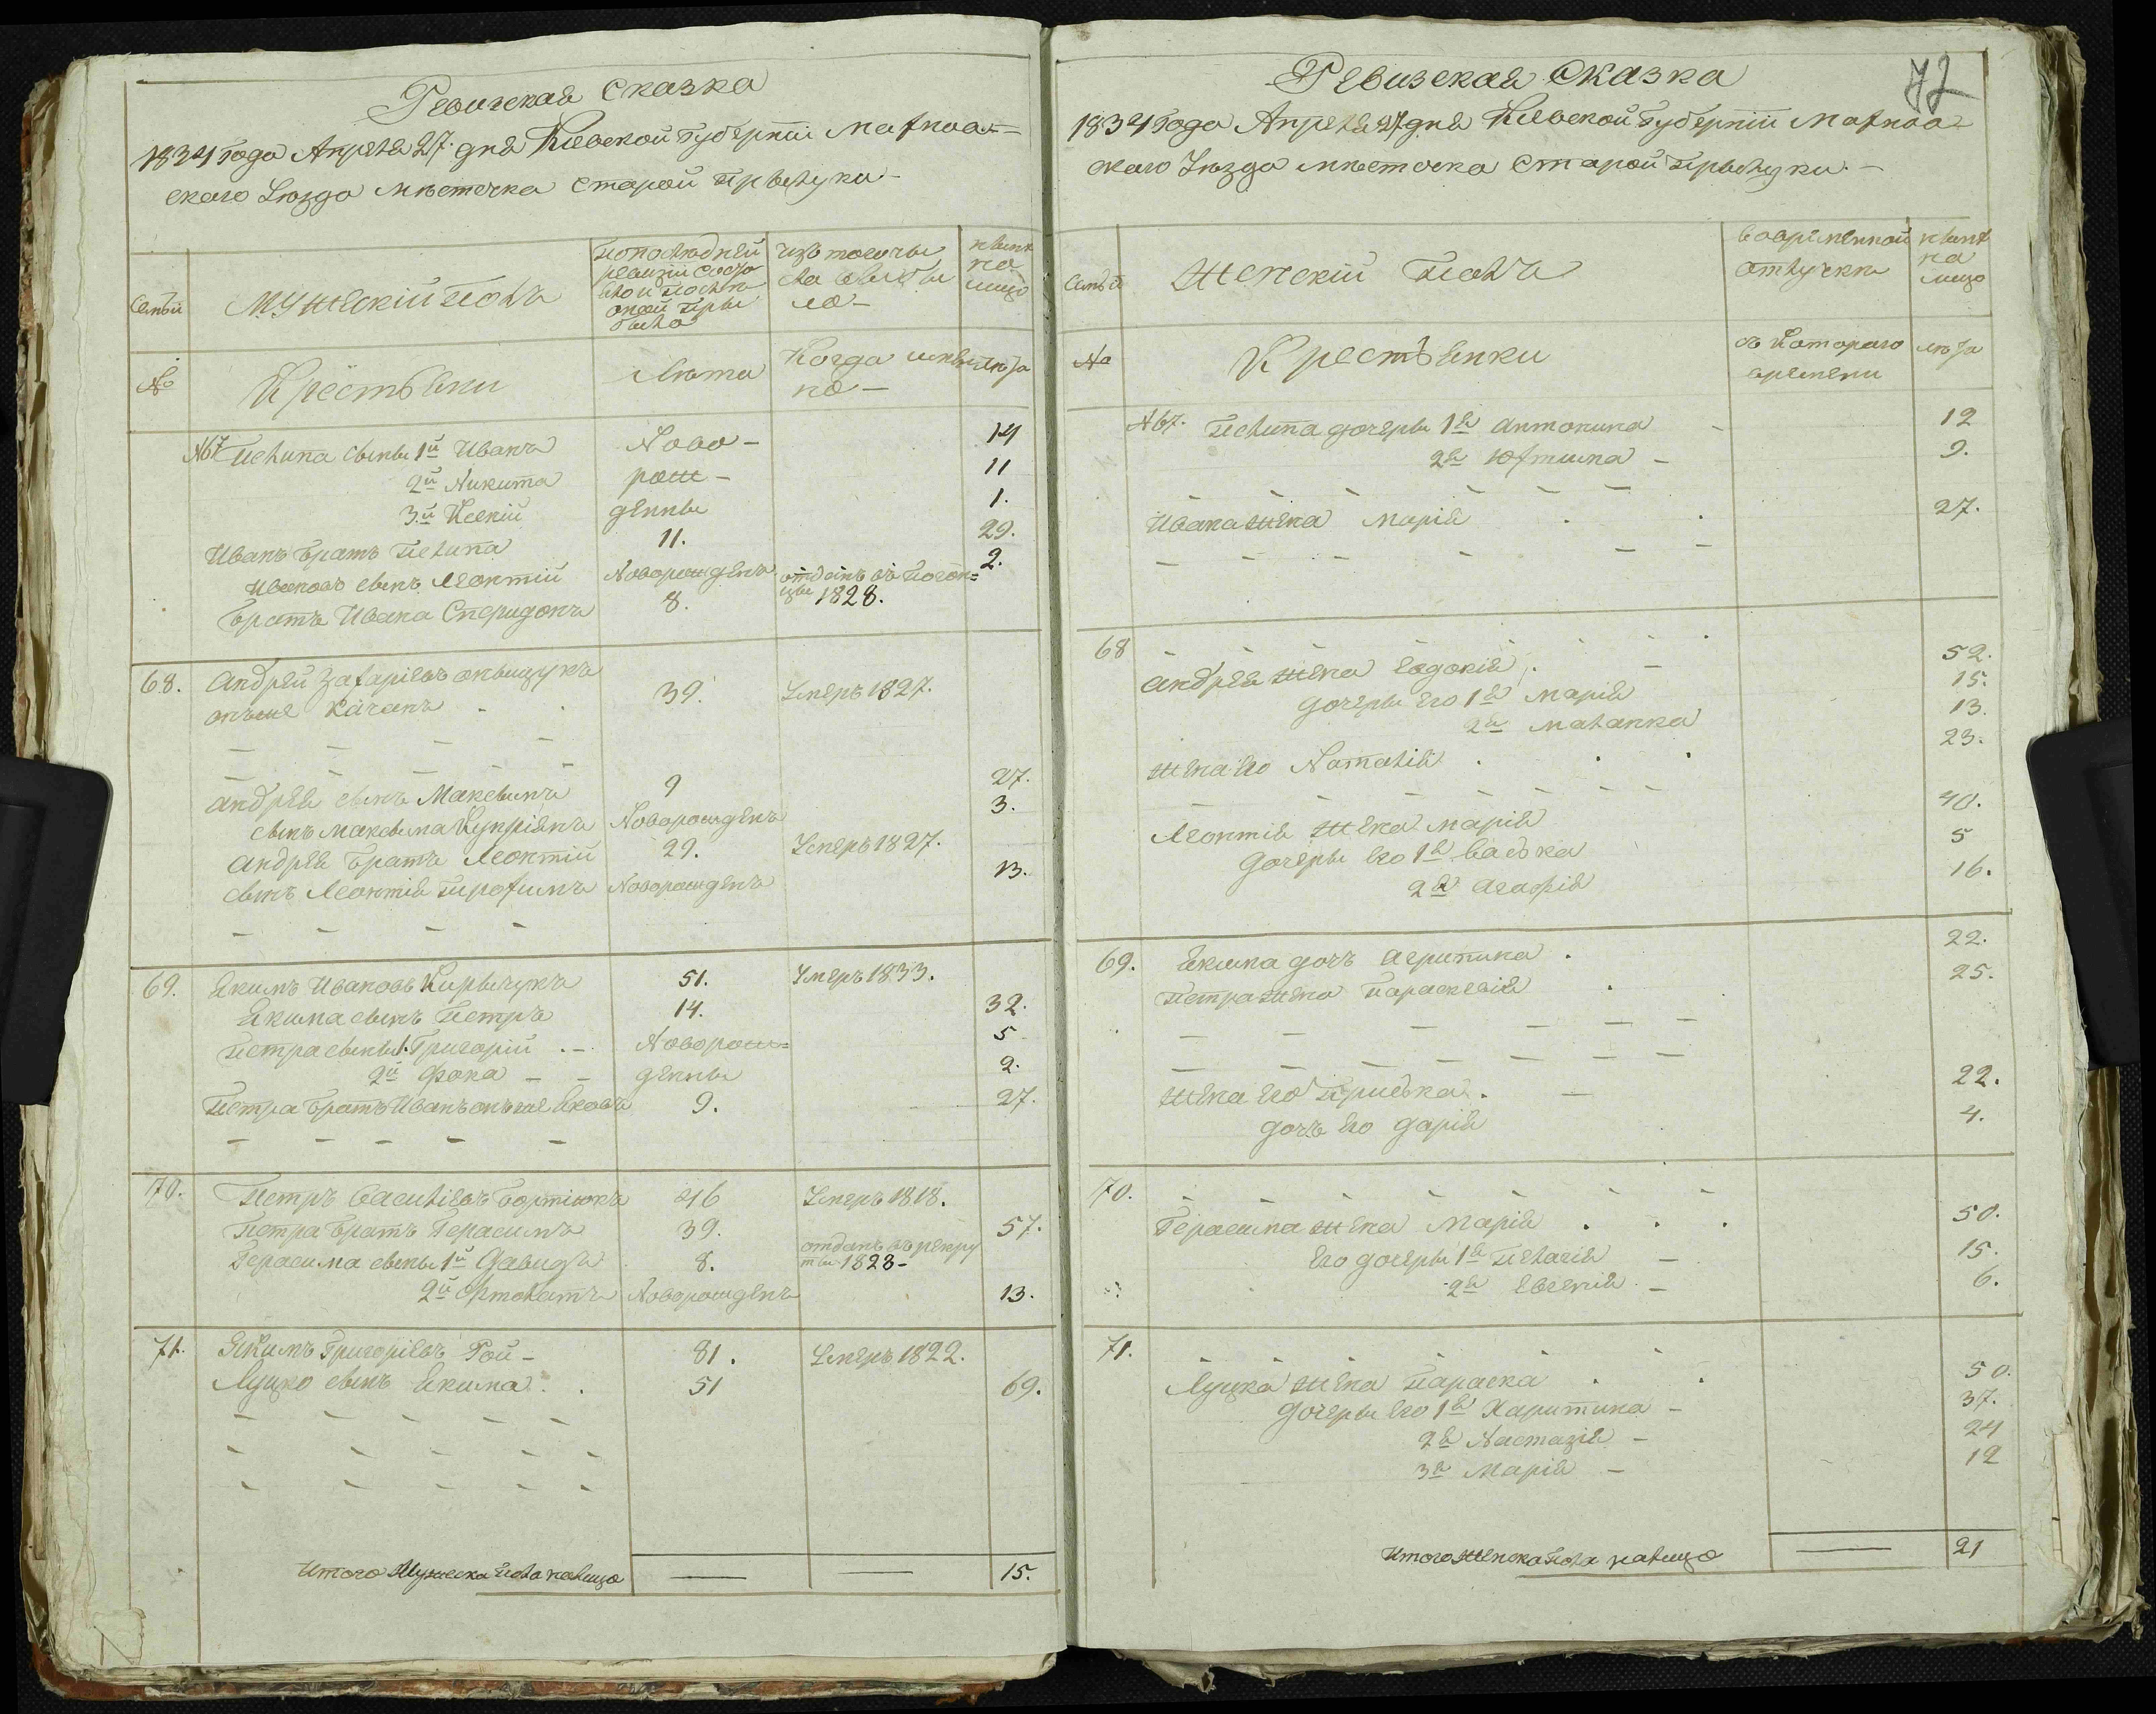 Ревизская Сказка
1834 года Апреля 27. дня Киевской Губернии Махнов=
скаго Уезда местечка Старой Прылуки -
Семьи
Мужеский Полъ
По последней ревизии состояло и после оной прибыло
Изъ того числа выбыло -
Ныне на лицо
№
Крестьяни
Лета
Когда именно -
Лета
№ 67 Пилипа сыны 1й Иванъ Ново- 14
2й Никита рож- 11
3й Ксений денны 1.
Иванъ братъ Пилипа 11. 29.
Ивановъ сынъ Леонтий Новорожденъ 2.
Братъ Ивана Спиридонъ 8. отданъ въ Погон=цы 1828.
68. Андрей Захариевъ онъже Качанъ 39. Умеръ 1827.
Андрея сынъ Максымъ 9 27.
сынъ Максыма Куприянъ Новорожденъ 3.
Андрея братъ Леонтий 29. Умеръ 1827.
сынъ Леонтия Трохимъ Новорожденъ 13.
69. Якимъ Ивановъ Кирычукъ 51. Умеръ 1833.
Якима сынъ Петръ 14. 32.
Петра сыны 1. Григорий .- Новорож= 5
2й Фока - - денны 2.
Петра братъ Иванъ онъже Яковъ 9. 27.
70. Петръ Василиевъ Бортнюкъ 46 Умеръ 1818.
Петра братъ Герасимъ 39. 57.
Герасима сыны 1й Давидъ 8. отданъ въ рекруты 1828-
2й Филатъ Новорожденъ 13.
71. Якимъ Григориевъ Рой - 81. Умеръ 1822.
Луцко сынъ Якима . . 51 69.
Итого Мужеска Пола налицо 15.
72
Ревизская Сказка
1834 года Апреля 27 дня Киевской Губернии Махнов=
скаго Уезда местечка Старой Прылуки. -
Семьи
Женский Полъ
Во временной отлучке
Ныне на лицо
№
Крестьянки
съ котораго времени
лета
№ 67. Пилипа дочеры 1я Антонина - 12
2я Юхтина - 9.
Ивана жена Мария . . 27.
68
Андрея жена Евдокия . - 52.
дочеры его 1я Мария 15.
2я Маланка 13.
жена его Наталия . . . 23.
Леонтия жена Мария 40.
дочеры его 1я Васька 5
2я Агафия 16.
69. Якима дочь Агрипина . 22.
Петра жена Параскевия . 25.
жена его Приська . - 22.
дочь его Дария 4.
70.
Герасима жена Мария . . . 50.
его дочеры 1я Пелагия - 15.
2я Евгения - 6.
71.
Луцка жена Параска . . 50.
дочеры его 1я Харитина - 37.
2я Настазия - 24
3я Мария - 12
Итого женска пола налицо 21